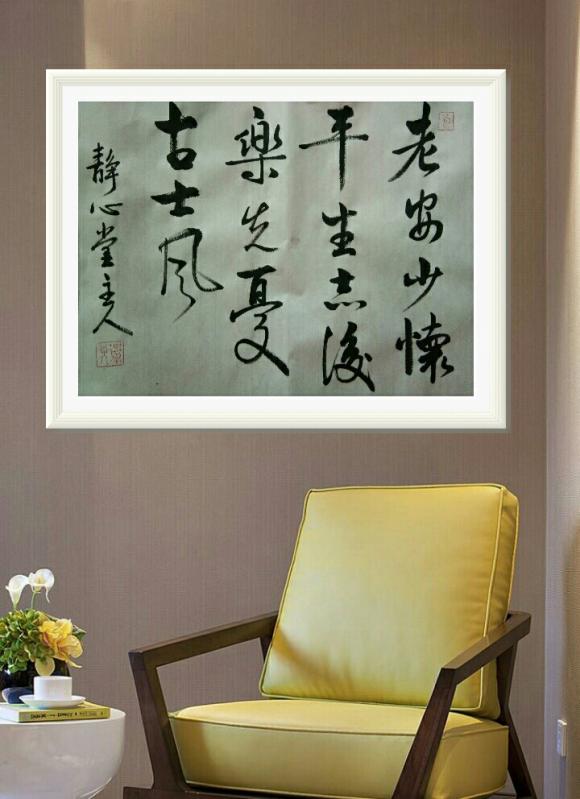 老安少懷
平生志後
樂先憂
古士風
靜心堂主人